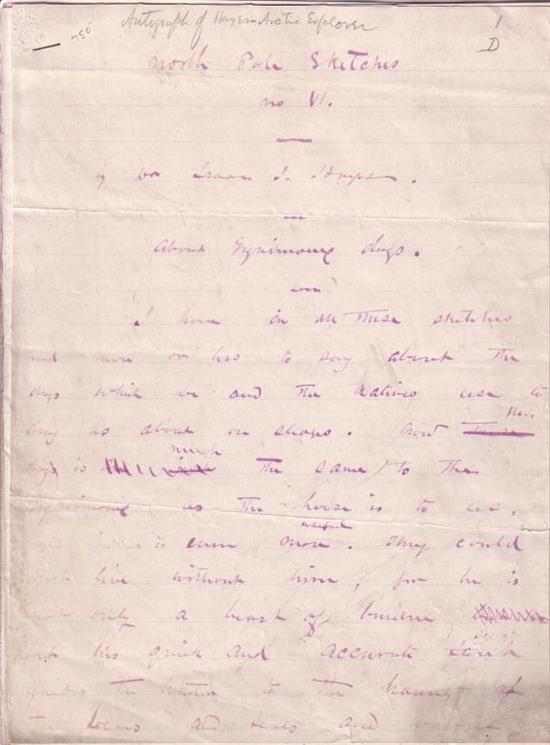 Autograph of Hayes - Arctic Explorer
750
1
D
North Pole Sketches
no VI.
by Dr Isaac I. Hayes.
About Esquimaux dogs.
I have in all these sketches
had more or less to say about the
dogs which we and the natives use to
drag us about on sledges. Now the
dog is much the same to the
Esquimaux as the horse is to us,
is even more useful. They could
not live without him, for he is
not only a beast of burden
but his quick and accurate scent
guides the hunter to the haunts of
the bears and seals and